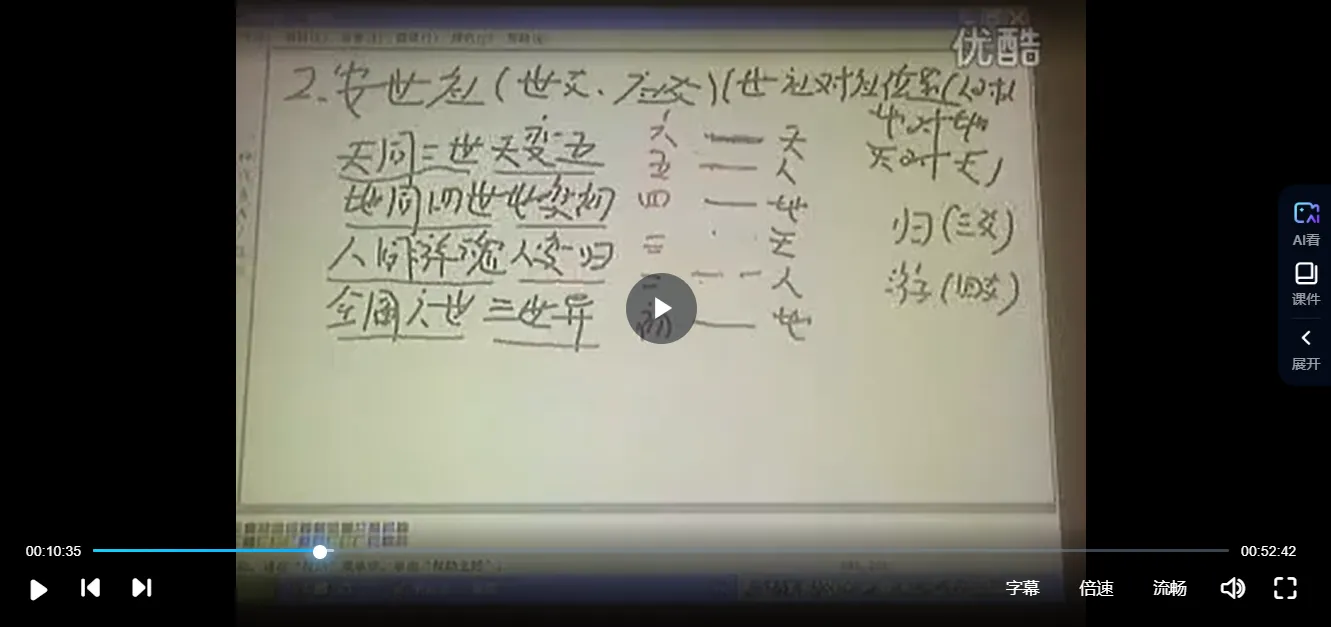 优酷
2.安世应(世爻、应爻)(世应对应位置(人对人
地对地
天对天)
天同二世天变五
地同四世地变初
人同游魂人变归
全同六世三世异
六 天
五 人
四 地
三 天
二 人
初 地
归(三爻)
游(四爻)
AI看
课件
展开
00:10:35
00:52:42
字幕
倍速
流畅